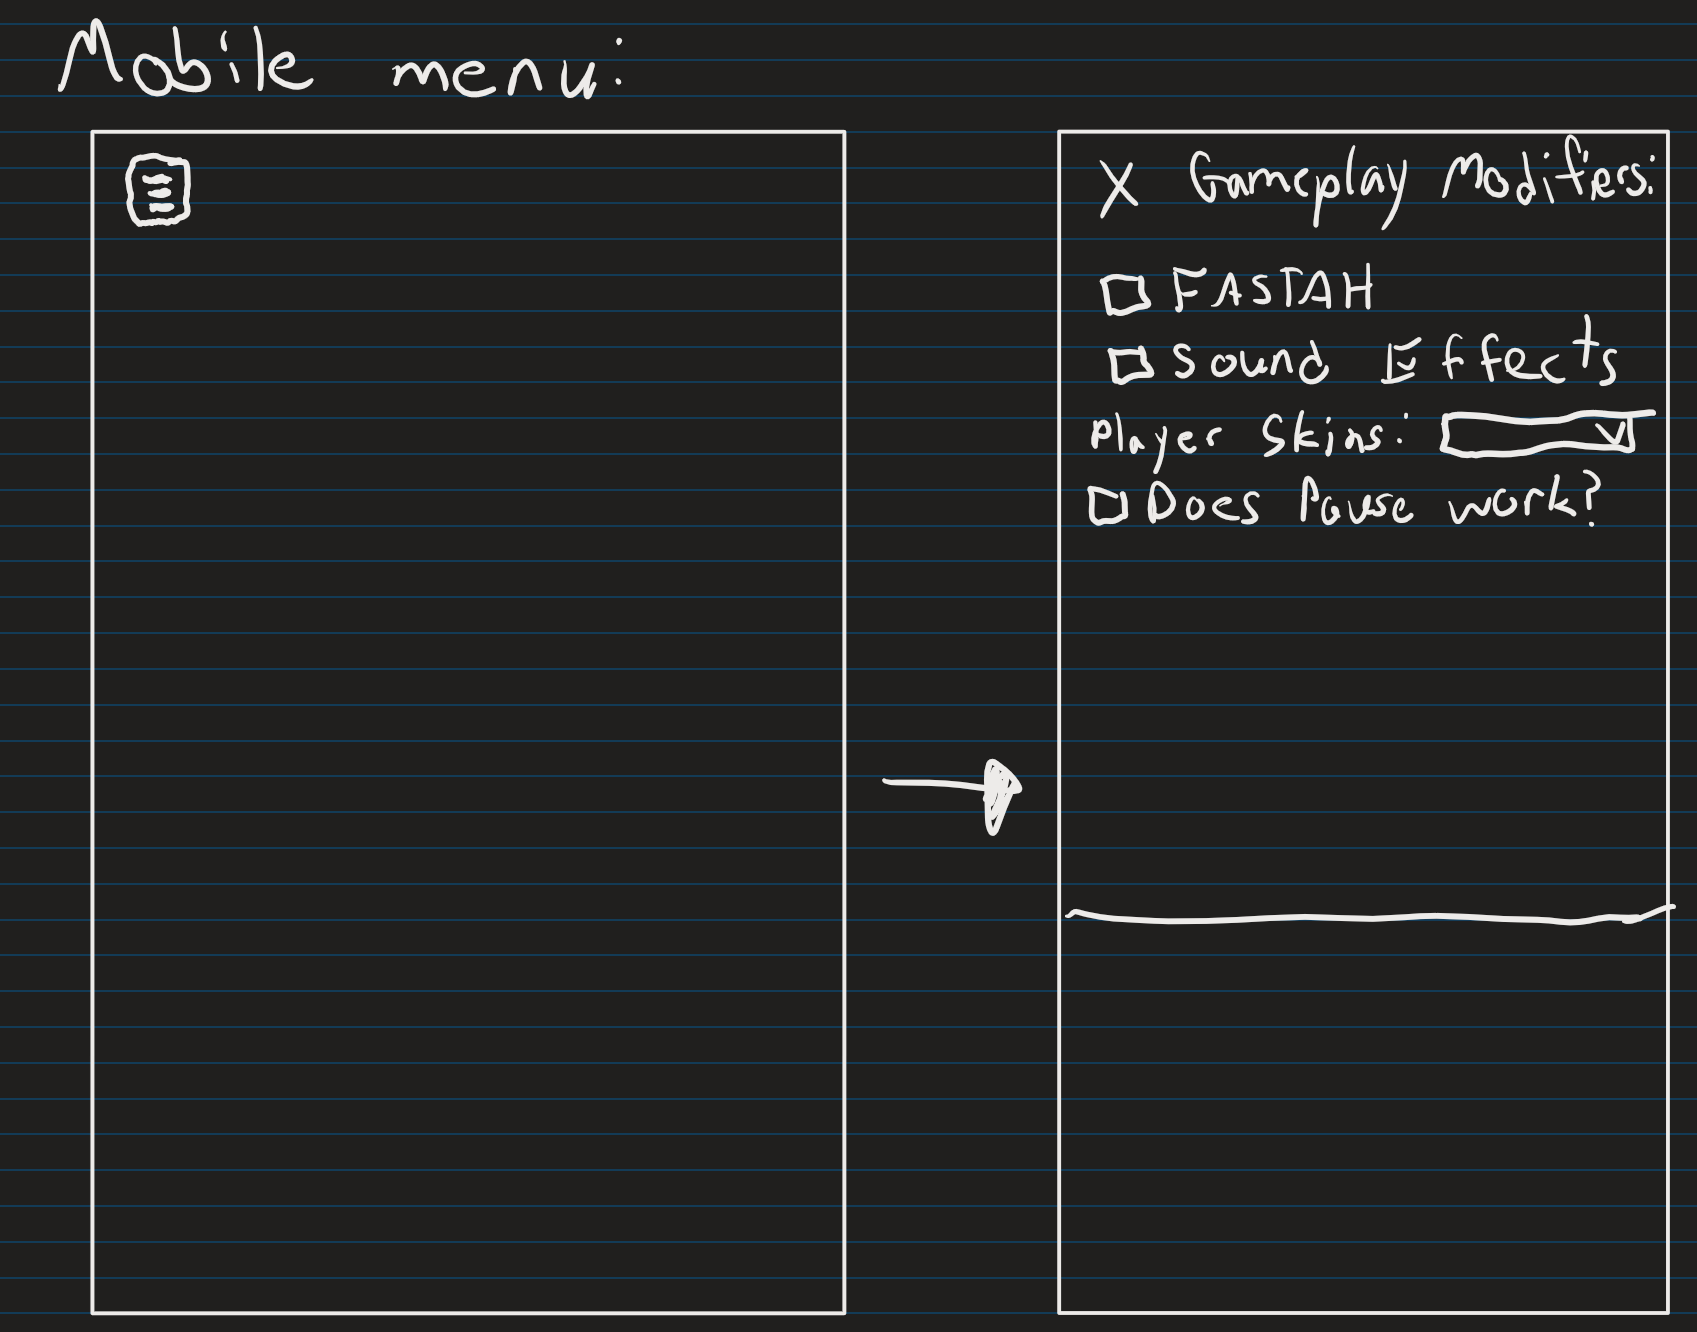 Mobile menu:
X Gameplay Modifiers:
FASTAH
Sound Effects
Player Skins:
Does Pause work?